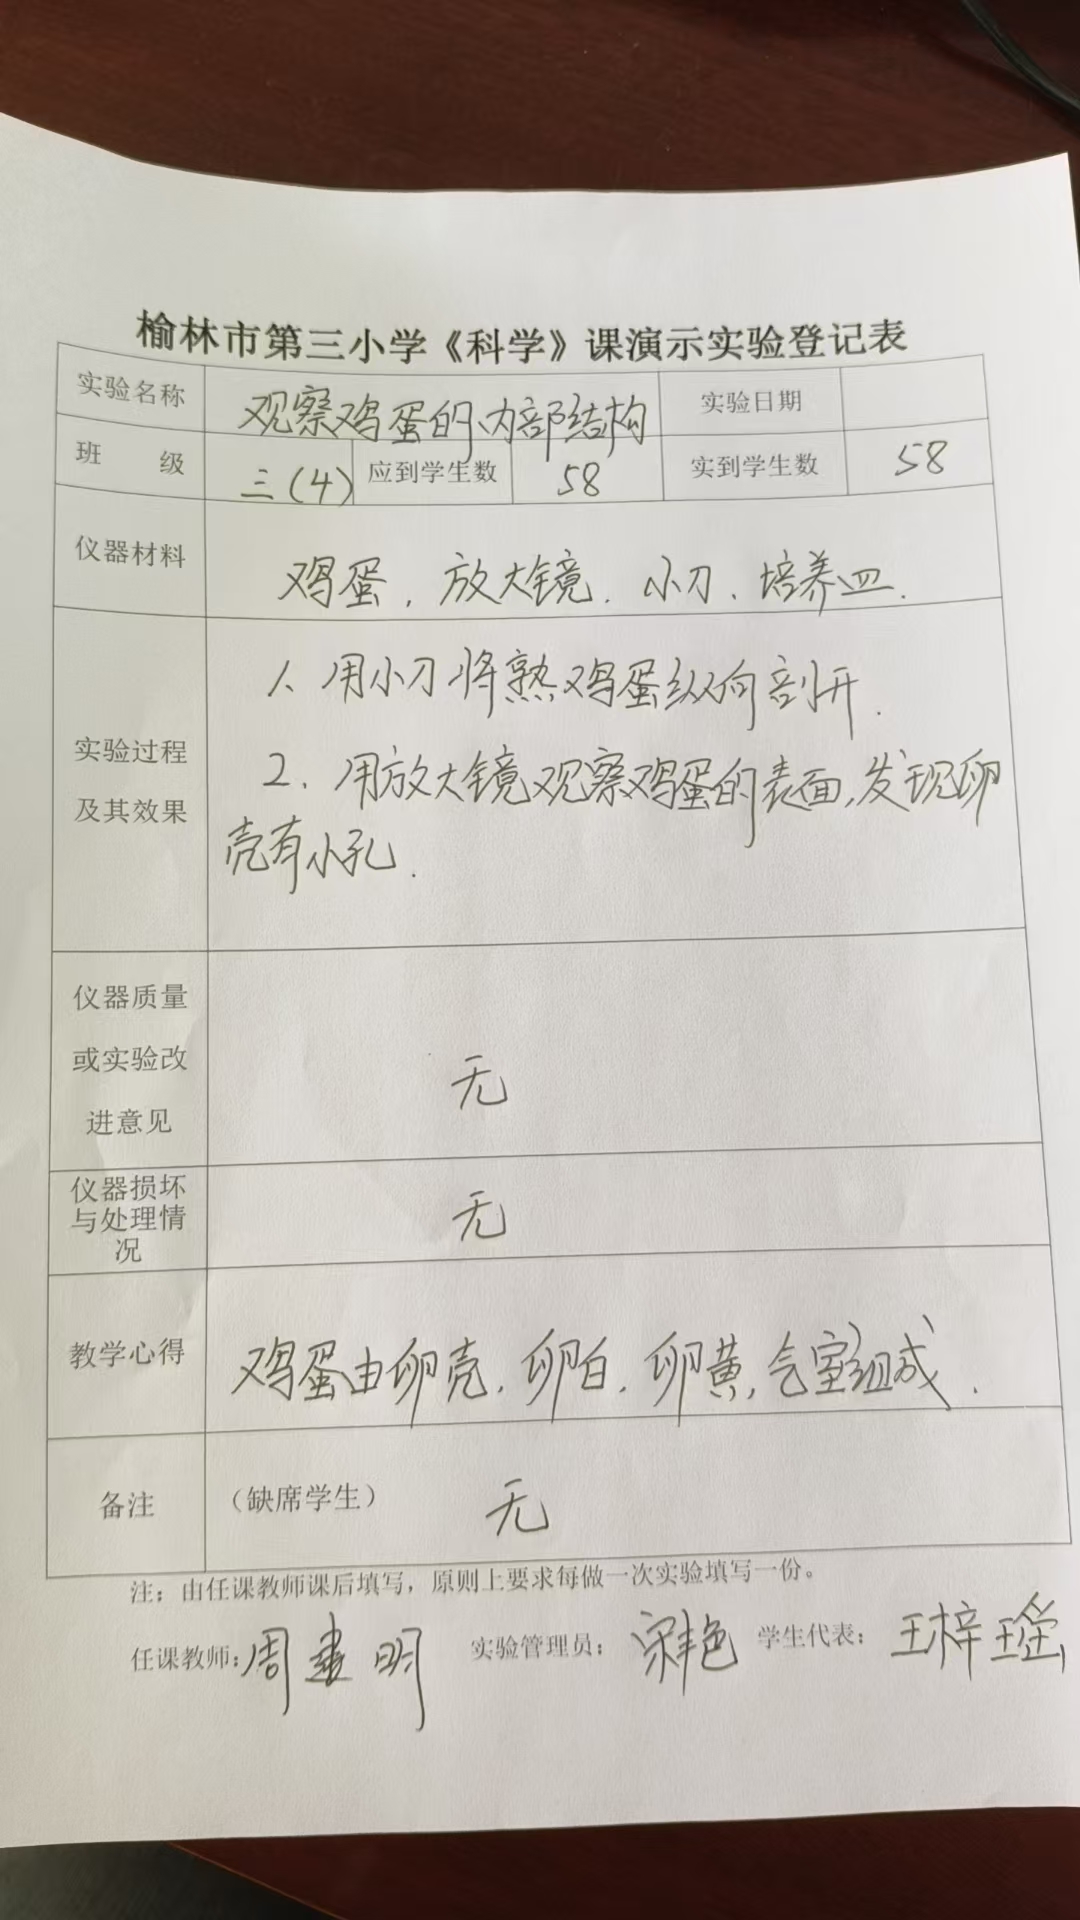 榆林市第三小学《科学》课演示实验登记表
实验名称 观察鸡蛋的内部结构 实验日期
班 级 三(4) 应到学生数 58 实到学生数 58
仪器材料 鸡蛋，放大镜．小刀、培养皿．
实验过程
及其效果
1、用小刀将熟鸡蛋纵向剖开．
2．用放大镜观察鸡蛋的表面，发现卵
壳有小孔．
仪器质量
或实验改
进意见
无
仪器损坏
与处理情
况
无
教学心得 鸡蛋由卵壳，卵白，卵黄，气室组成．
备注 （缺席学生） 无
注：由任课教师课后填写，原则上要求每做一次实验填写一份。
任课教师：周建明 实验管理员：宋艳 学生代表：王梓瑶